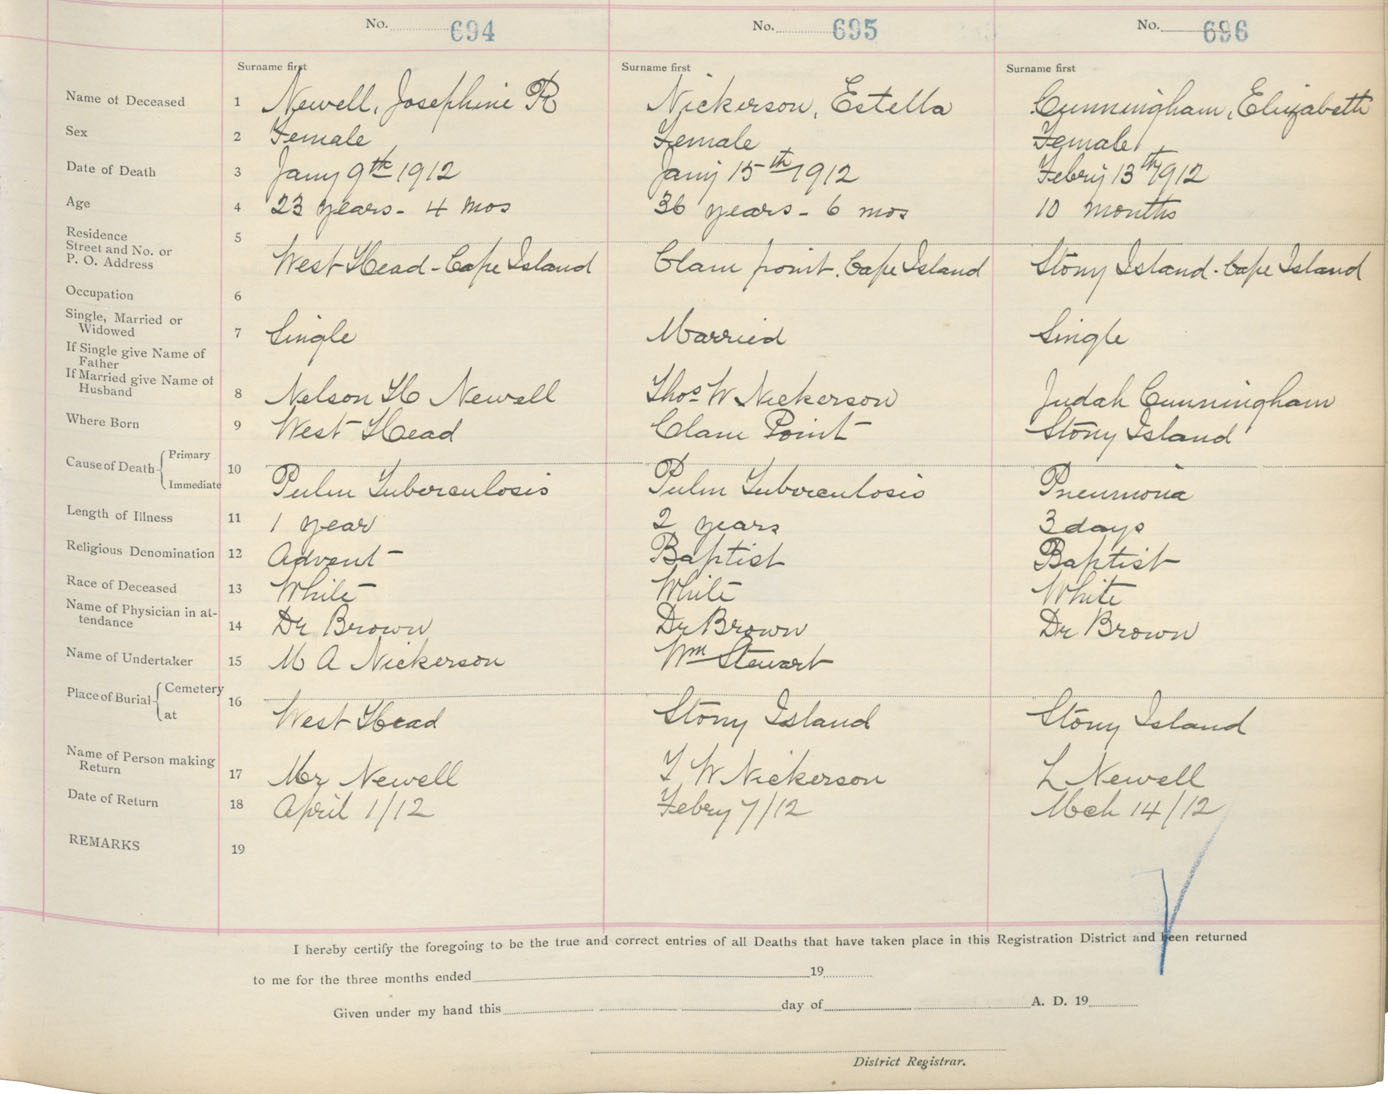 No. 694 No. 695 No. 696
Surname first Surname first Surname first
Name of Deceased 1 Newell, Josephine R Nickerson, Estella Cunningham, Elizabeth
Sex 2 Female Female Female
Date of Death 3 Jany 9th 1912 Jany 15th 1912 Febry 13th 1912
Age 4 23 years - 4 mos 36 years - 6 mos 10 months
Residence
Street and No. or
P. O. Address 5 West Head - Cape Island Clam point. Cape Island Stony Island - Cape Island
Occupation 6
Single, Married or
Widowed 7 Single Married Single
If Single give Name of
Father
If Married give Name of
Husband 8 Nelson H Newell Thos W Nickerson Judah Cunningham
Where Born 9 West Head Clam Point Stony Island
Cause of Death Primary
Immediate 10 Pulm Tuberculosis Pulm Tuberculosis Pneumonia
Length of Illness 11 1 year 2 years 3 days
Religious Denomination 12 Advent Baptist Baptist
Race of Deceased 13 White White White
Name of Physician in at-
tendance 14 Dr Brown Dr Brown Dr Brown
Name of Undertaker 15 M A Nickerson Wm Stewart
Place of Burial Cemetery
at 16 West Head Stony Island Stony Island
Name of Person making
Return 17 Mr Newell T W Nickerson L Newell
Date of Return 18 April 1/12 Febry 7/12 Mch 14/12
REMARKS 19
I hereby certify the foregoing to be the true and correct entries of all Deaths that have taken place in this Registration District and been returned
to me for the three months ended 19
Given under my hand this day of A. D. 19
District Registrar.